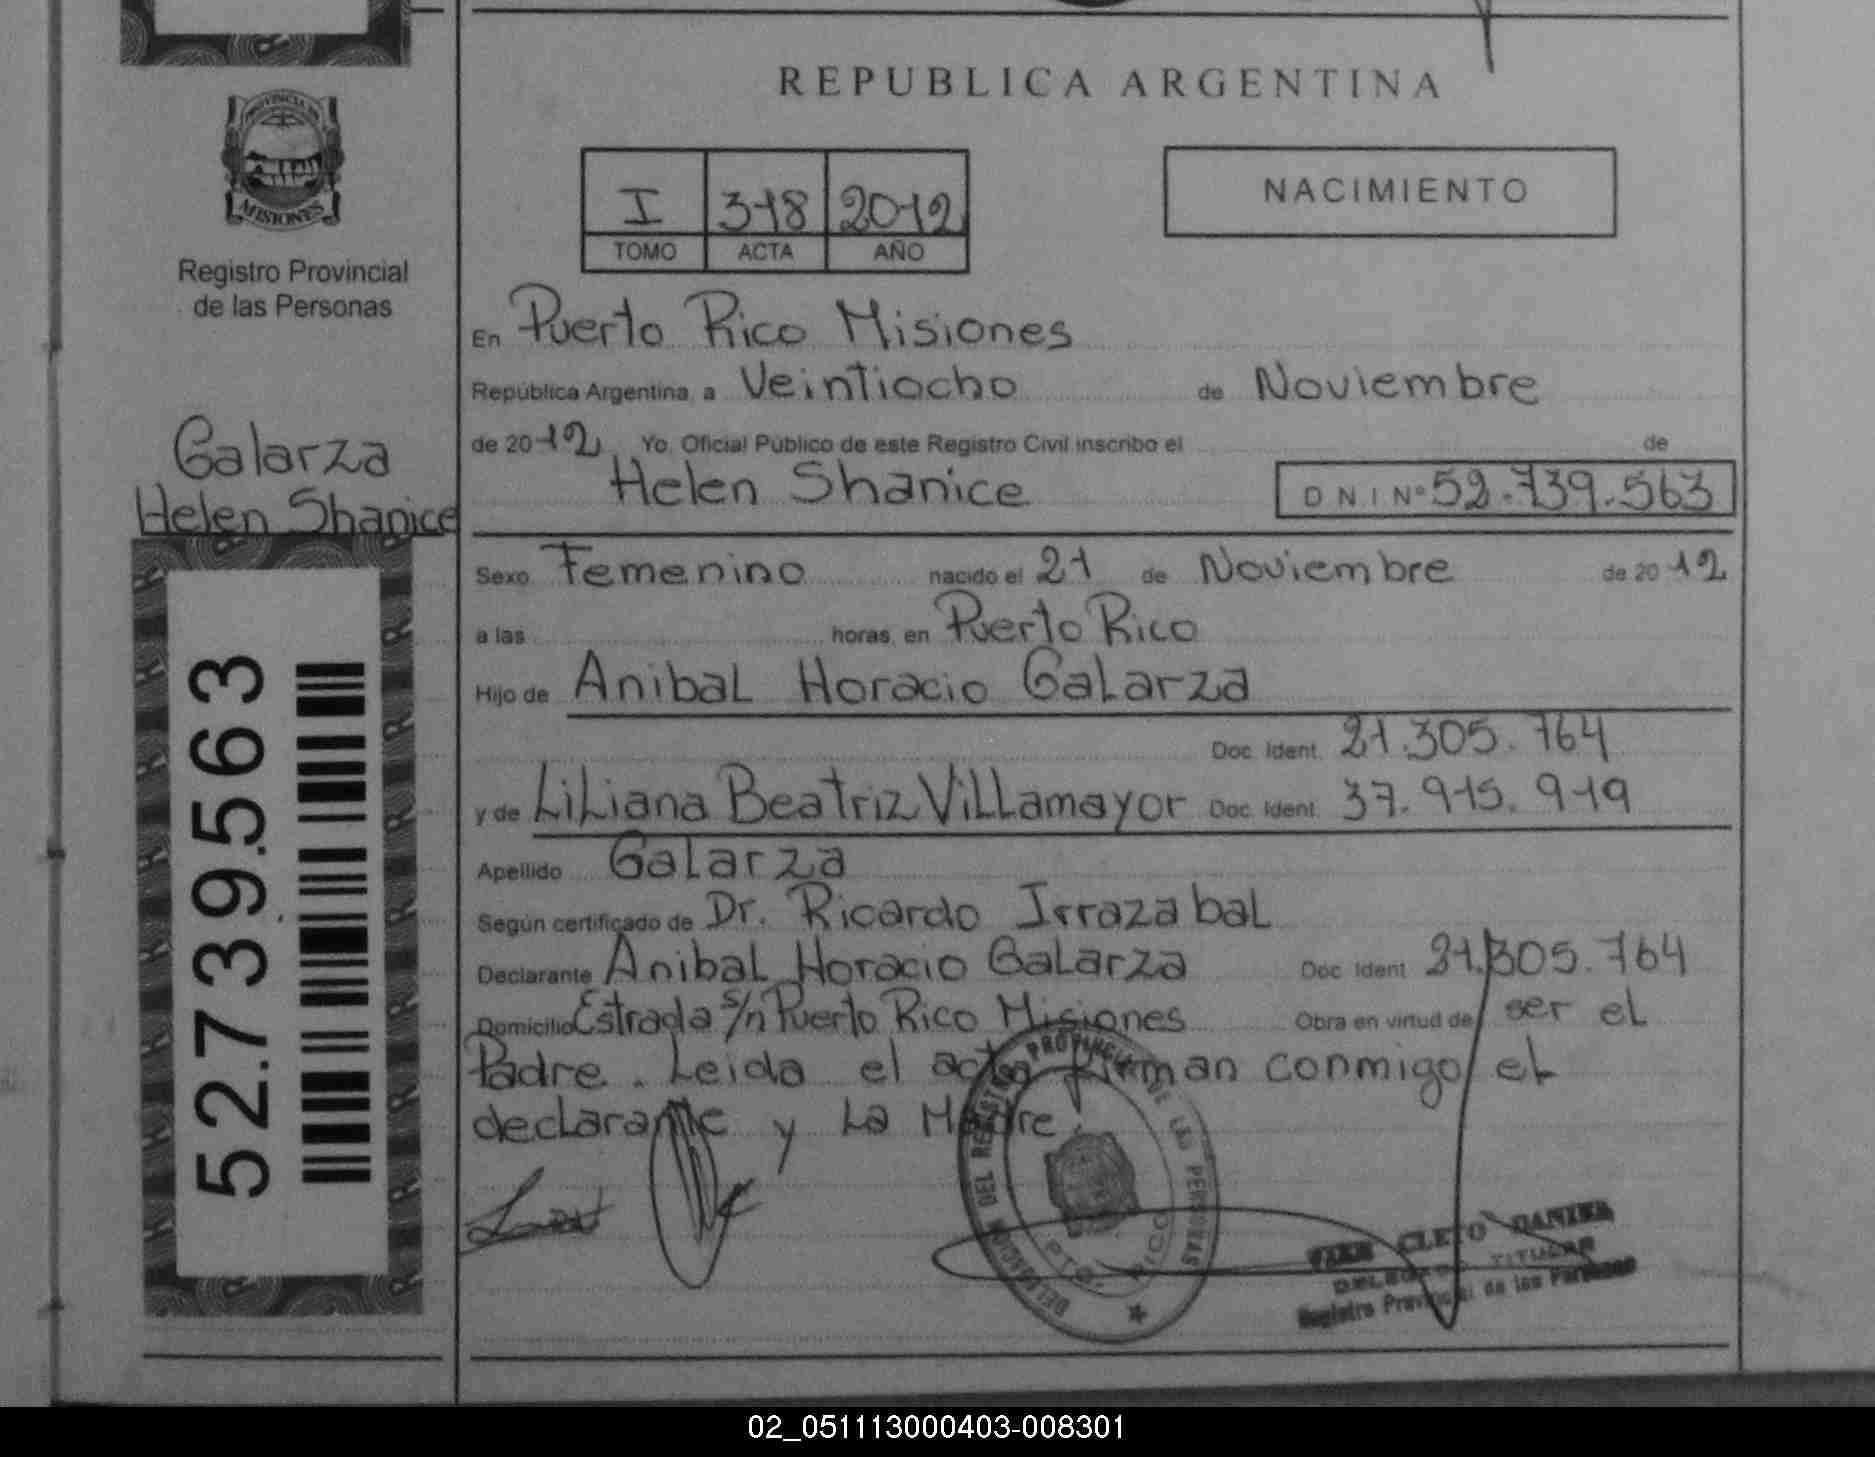 REPUBLICA ARGENTINA
PROVINCIA DE
MISIONES
Registro Provincial
de las Personas
I 318 2012
TOMO ACTA AÑO
NACIMIENTO
En Puerto Rico Misiones
República Argentina, a Veintiocho de Noviembre
de 2012 Yo, Oficial Público de este Registro Civil inscribo el de
Helen Shanice D N I Nº 52.739.563
Galarza
Helen Shanice
52.739.563
Sexo Femenino nacido el 21 de Noviembre de 2012
a las horas, en Puerto Rico
Hijo de Anibal Horacio Galarza
Doc. Ident. 21.305.764
y de Liliana Beatriz Villamayor Doc. Ident. 37.915.919
Apellido Galarza
Según certificado de Dr. Ricardo Irrazabal
Declarante Anibal Horacio Galarza Doc Ident 21.305.764
Domicilio Estrada s/n Puerto Rico Misiones Obra en virtud de ser el
Padre. Leida el acta firman conmigo el
declarante y La Madre.
DELEGACION DEL REGISTRO PROVINCIAL DE LAS PERSONAS
PTO. RICO
CLETO
DELEGADO TITULAR
Registro Provincial de las Personas
02_051113000403-008301